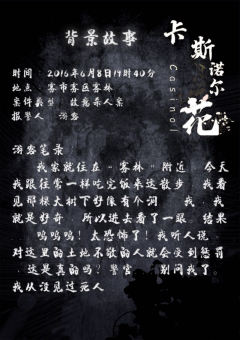 背景故事
卡斯诺尔花
Casinol
时间：2016年6月8日19时40分
地点：客市客区客林
案件类型：故意杀人案
报警人：游客
游客笔录
我家就住在“客林”附近，今天
我跟往常一样吃完饭来这散步，我看
见那棵大树下好像有个词，我，我
就是好奇，所以进去看了一眼。结果
，呜呜呜！太恐怖了！我听人说，
对这里的土地不敬的人就会受到惩罚
，这是真的吗？警官，别问我了。
我从没见过死人